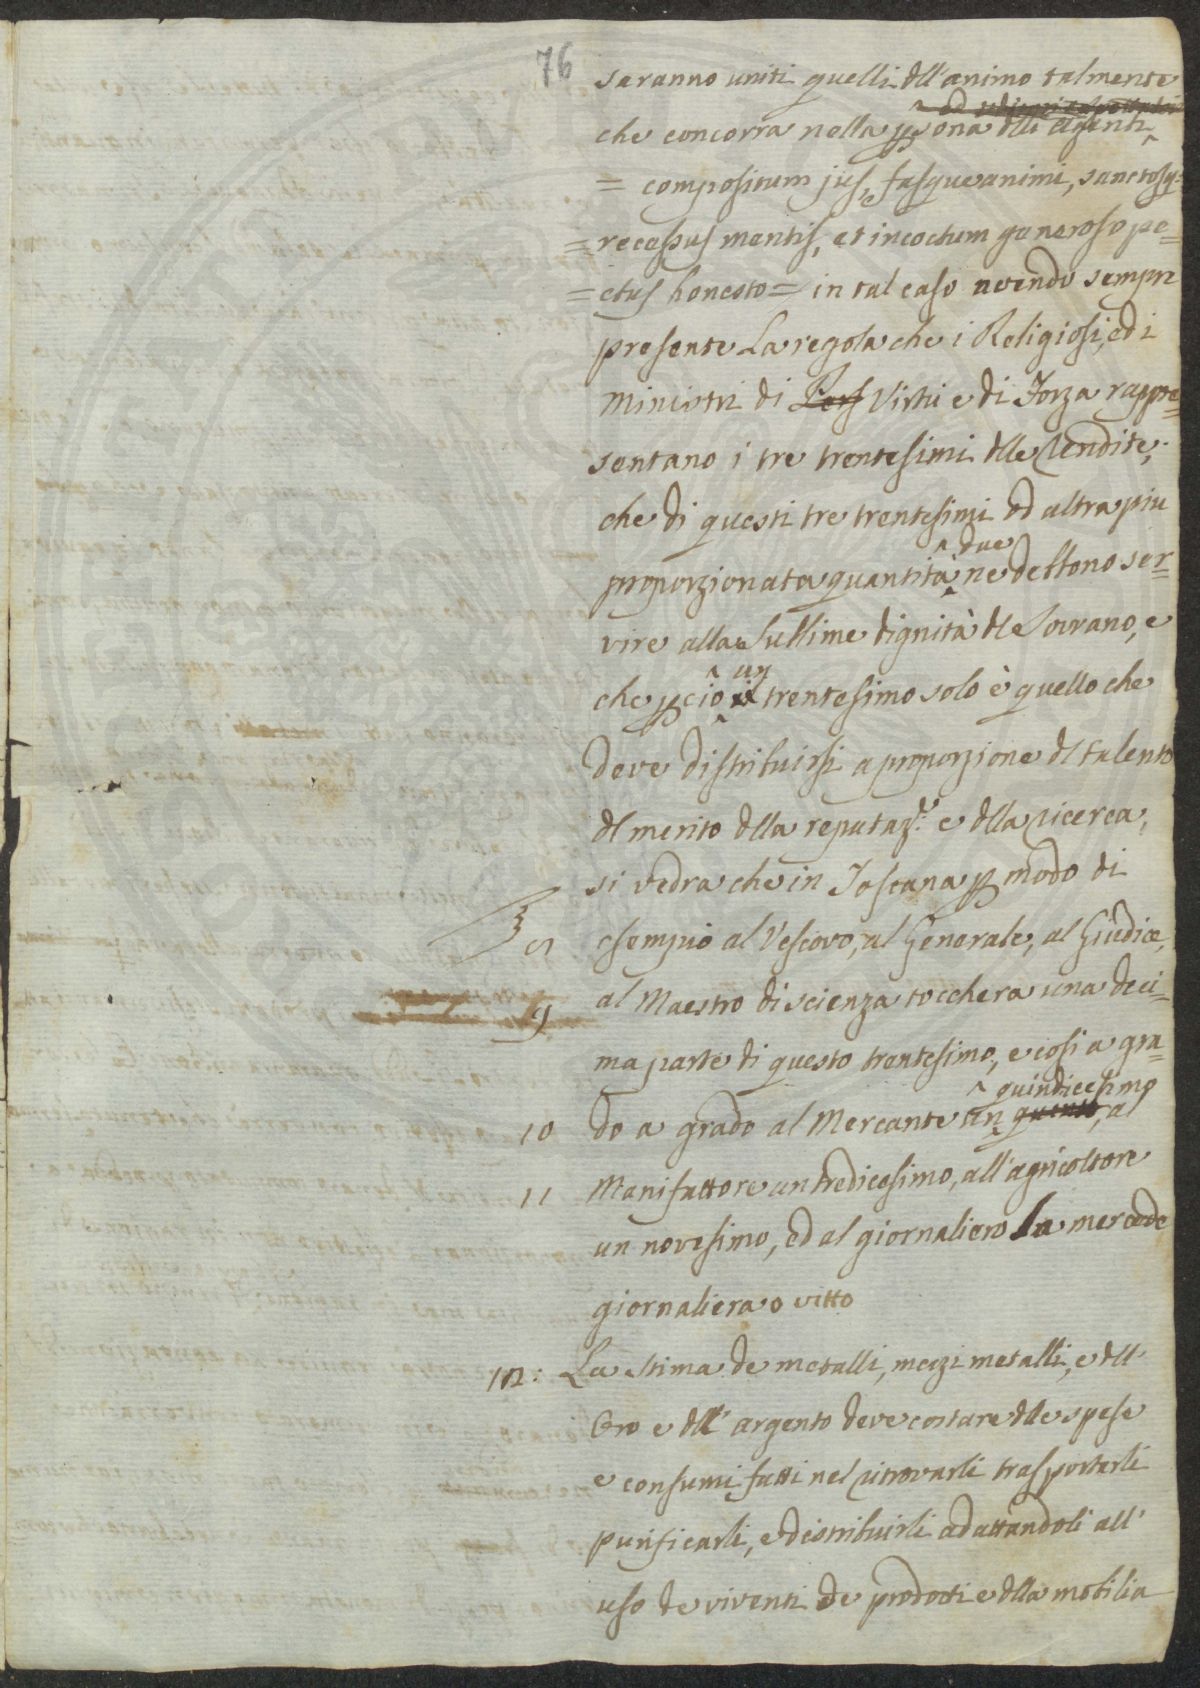 76
saranno uniti quelli dll'animo talmente
che concorra nella psona dlli Agenti
= compositum jus, fasque animi, sanctosq=
= recessus mentis, et incoctum generoso pe=
= ctus honesto = in tal caso avendo sempre
presente La regola che i Religiosi, ed i
Ministri di Virtù e di Forza rappre=
sentano i tre trentesimi dlle Vendite,
che di questi tre trentesimi od altra piu
proporzionata quantità due ne debbono ser=
vire alla Sublime dignità dl Sovrano, e
che pciò un trentesimo solo è quello che
deve distribuirsi a proporzione dl talento
dl merito dlla reputaz.e e dlla ricerca,
si vedra che in Toscana p modo di
esempio al Vescovo, al Generale, al Giudice,
9 al Maestro di scienza tocchera una deci=
ma parte di questo trentesimo, e cosi a gra=
10 do a grado al Mercante un quindicesimo, al
11 Manifattore un tredicesimo, all'agricoltore
un novesimo, ed al giornaliero la mercede
giornaliera o vitto
12: La stima de metalli, mezi metalli, e dll'
Oro e dll' argento deve costare dlle spese
e consumi fatti nel ritrovarli trasportarli
purificarli, e distribuirli adattandoli all'
uso de viventi de prodotti e dlla mobilia